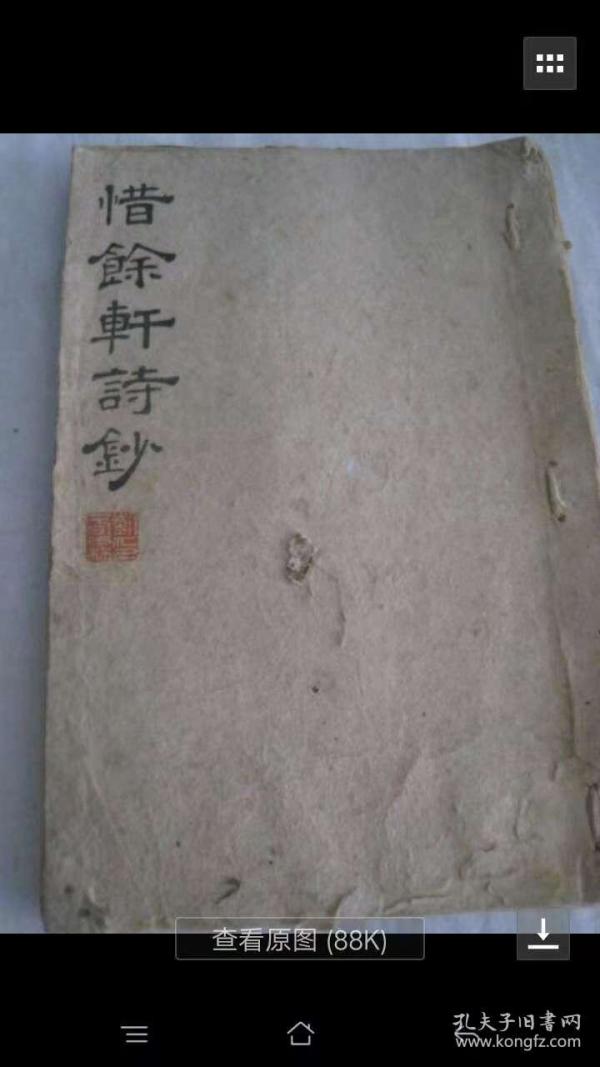 惜餘軒詩鈔
查看原图 (88K)
孔夫子旧书网
www.kongfz.com